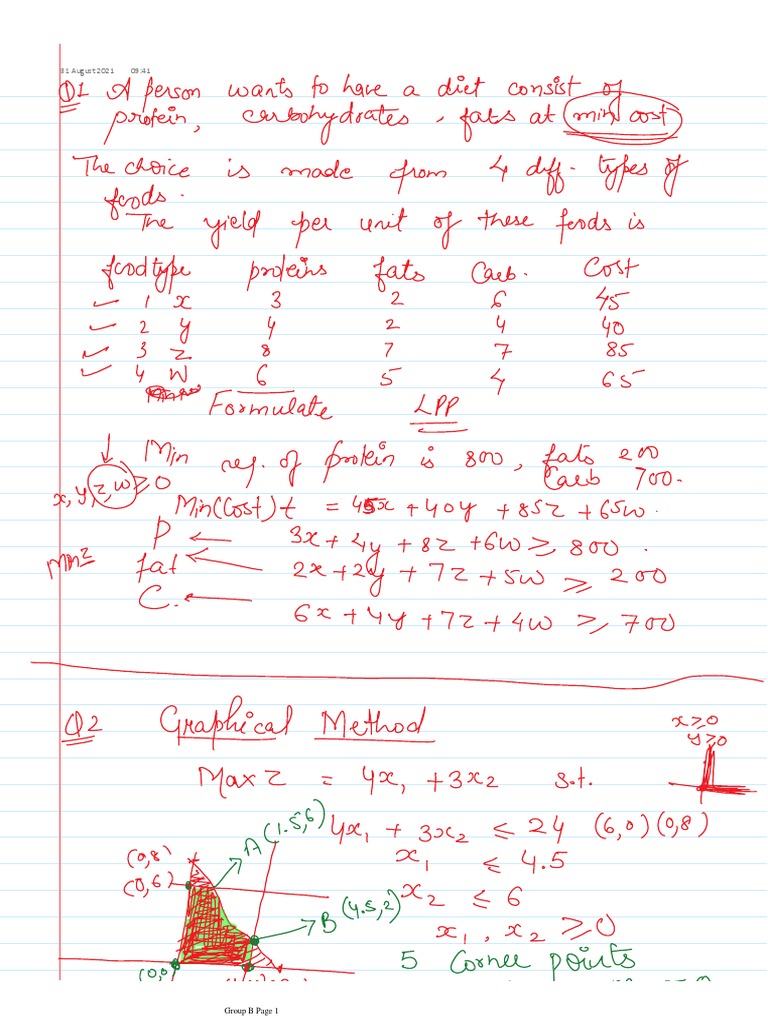 31 August 2021 09:41
Q1 A person wants to have a diet consist of
protein, carbohydrates, fats at min cost
The choice is made from 4 diff. types of
foods.
The yield per unit of these foods is
foodtype proteins fats Carb. Cost
1 x 3 2 6 45
2 y 4 2 4 40
3 z 8 7 7 85
4 w 6 5 4 65
Formulate LPP
Min req. of protein is 800, fats 200
Carb 700.
x, y, z, w ≥ 0
Min(Cost) t = 45x + 40y + 85z + 65w.
P ← 3x + 4y + 8z + 6w ≥ 800.
Min z
fat ← 2x + 2y + 7z + 5w ≥ 200
C. ← 6x + 4y + 7z + 4w ≥ 700
Q2 Graphical Method
x ≥ 0
y ≥ 0
Max Z = 4x₁ + 3x₂ s.t.
4x₁ + 3x₂ ≤ 24 (6,0) (0,8)
x₁ ≤ 4.5
x₂ ≤ 6
x₁, x₂ ≥ 0
A (1.5,6)
(0,8)
(0,6)
B (4.5,2)
(0,0)
5 Corner points
Group B Page 1